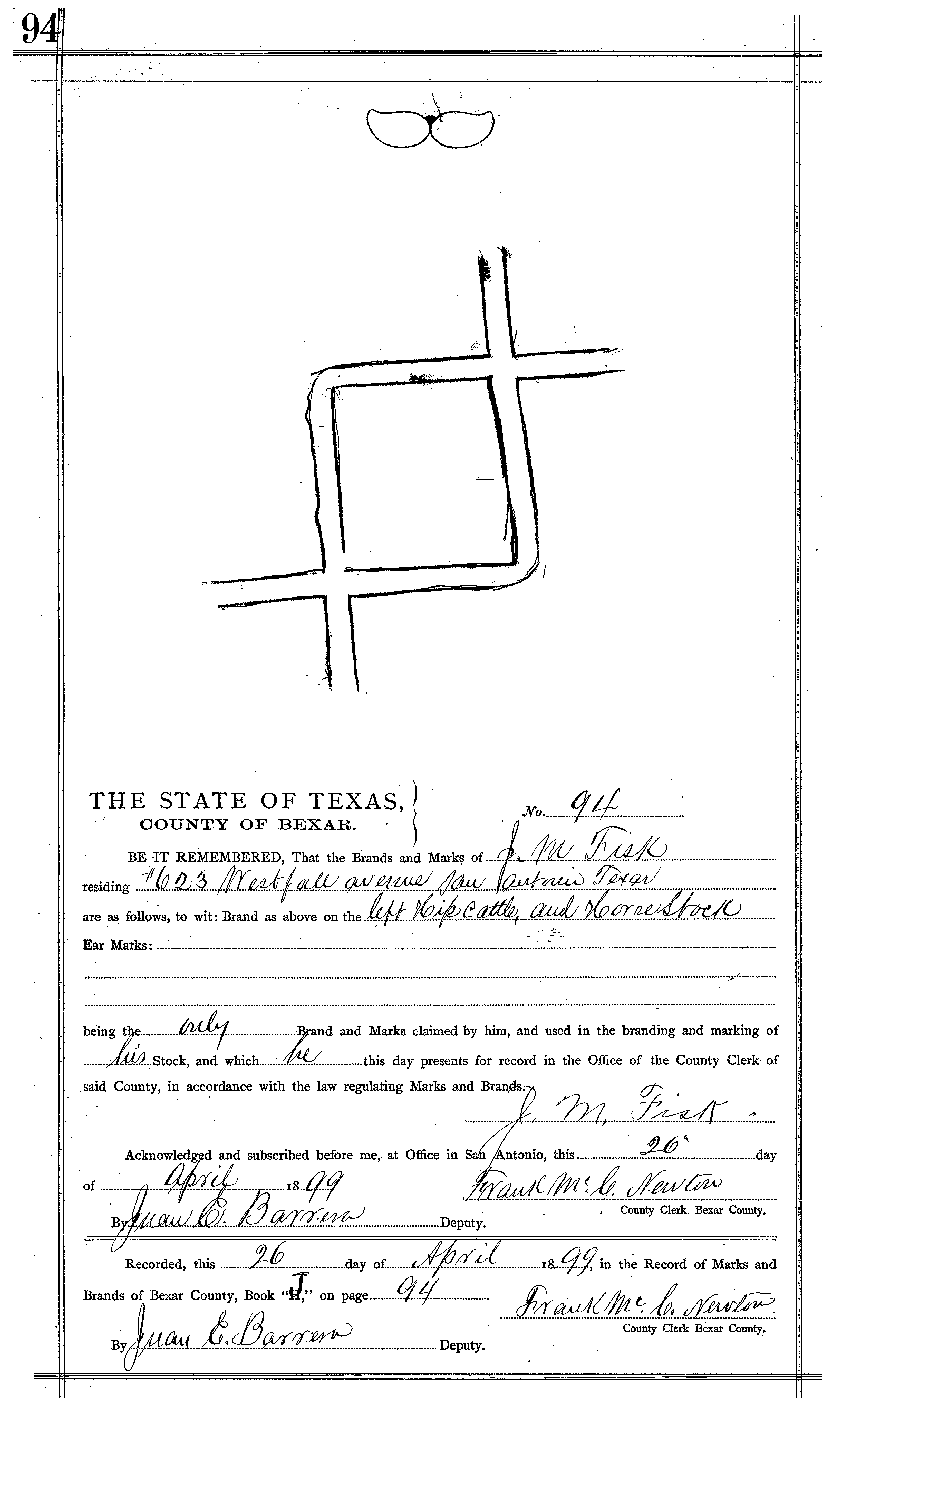 94
THE STATE OF TEXAS,
COUNTY OF BEXAR.
No. 94
BE IT REMEMBERED, That the Brands and Marks of J. M Fisk
residing #623 Westfall avenue San Antonio Texas
are as follows, to wit: Brand as above on the left Hip Cattle, and Horse Stock
Ear Marks:
being the only Brand and Marks claimed by him, and used in the branding and marking of
his Stock, and which he this day presents for record in the Office of the County Clerk of
said County, in accordance with the law regulating Marks and Brands.
J. M. Fisk
Acknowledged and subscribed before me, at Office in San Antonio, this 26 day
of April 1899 Frank Mc. C. Newton
County Clerk Bexar County.
By Juan E. Barrera Deputy.
Recorded, this 26 day of April 1899, in the Record of Marks and
Brands of Bexar County, Book "I," on page 94
Frank Mc. C. Newton
County Clerk Bexar County.
By Juan E. Barrera Deputy.